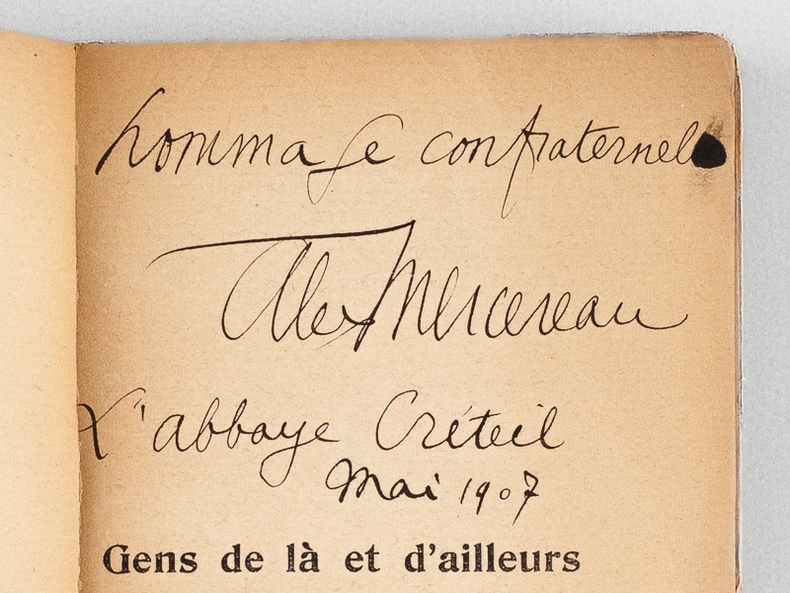 hommage confraternel
Alex Mercereau
L'abbaye Créteil
Mai 1907
Gens de là et d'ailleurs